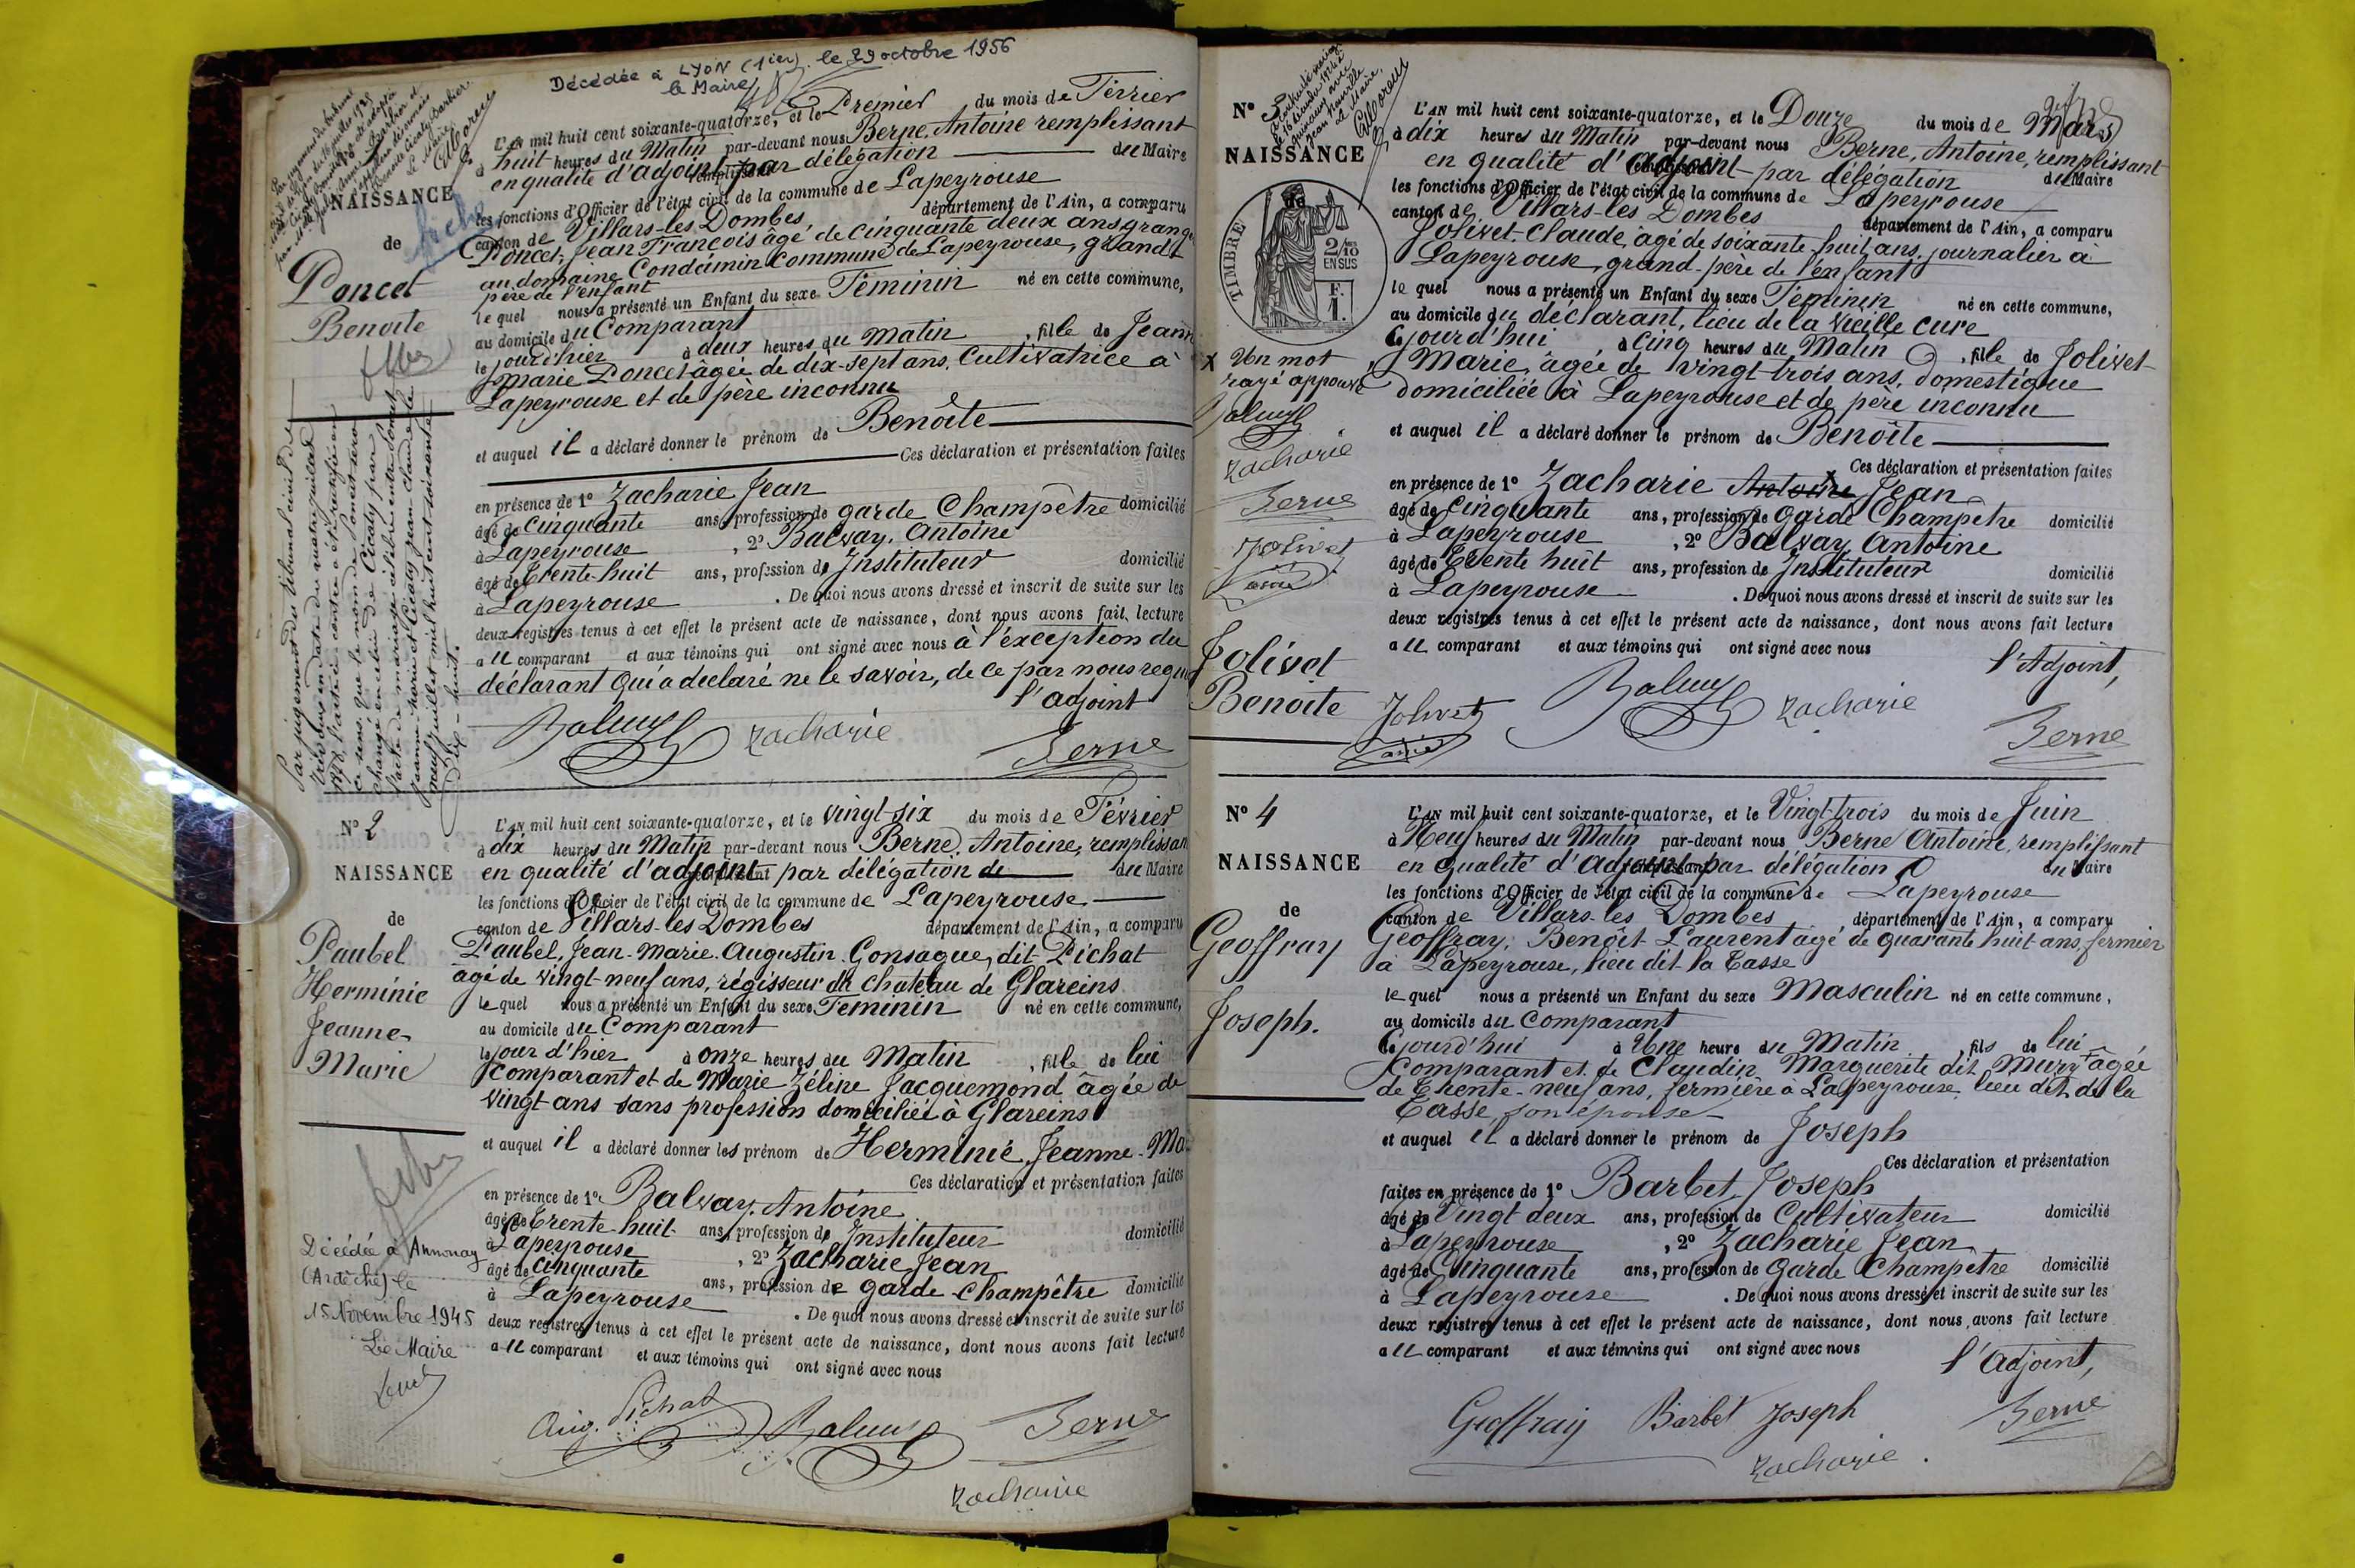 Décédée à LYON (1ier) le 29 octobre 1956
le Maire
NAISSANCE
de
Poncet
Benoite
L'AN mil huit cent soixante-quatorze, et le Premier du mois de Février
à huit heures du Matin par-devant nous Berne, Antoine remplissant
en qualité d'adjoint par délégation du Maire
les fonctions d'Officier de l'état civil de la commune de Lapeyrouse
canton de Villars-les Dombes département de l'Ain, a comparu
Poncet, Jean François âgé de cinquante deux ans, granger
au domaine Condamin commune de Lapeyrouse, grand
père de l'enfant
le quel nous a présenté un Enfant du sexe Féminin né en cette commune,
au domicile du Comparant
le jour d'hier à deux heures du matin, fille de Jeanne
marie Poncet âgée de dix-sept ans, Cultivatrice à
Lapeyrouse et de père inconnu
et auquel il a déclaré donner le prénom de Benoîte
Ces déclaration et présentation faites
en présence de 1° Zacharie Jean
âgé de cinquante ans, profession de garde Champêtre domicilié
à Lapeyrouse, 2° Balvay, Antoine
âgé de Trente-huit ans, profession de Instituteur domicilié
à Lapeyrouse. De quoi nous avons dressé et inscrit de suite sur les
deux registres tenus à cet effet le présent acte de naissance, dont nous avons fait lecture
au comparant et aux témoins qui ont signé avec nous à l'éxception du
déclarant qui a declaré ne le savoir, de ce par nous requis
l'adjoint
Balvay Zacharie Berne
Par jugement du tribunal civil de
Trévoux en date du quatre juillet
changé en celui de Cicaty par
neuf juillet mil huit cent soixante
dix-huit.
N° 2
NAISSANCE
de
Paubel
Herminie
Jeanne-
Marie
L'AN mil huit cent soixante-quatorze, et le vingt-six du mois de Février
à dix heures du Matin par-devant nous Berne, Antoine, remplissant
en qualité d'adjoint par délégation de du Maire
les fonctions d'Officier de l'état civil de la commune de Lapeyrouse
canton de Villars-les Dombes département de l'Ain, a comparu
Paubel, Jean-Marie Augustin Gonsague, dit Pichat
âgé de vingt-neuf ans, régisseur du chateau de Glareins
le quel nous a présenté un Enfant du sexe Féminin né en cette commune,
au domicile du Comparant
le jour d'hier à onze heures du Matin, fille de lui
comparant et de Marie Zéline Jacquemond âgée de
vingt-ans sans profession domiciliée à Glareins
et auquel il a déclaré donner les prénom de Herminie, Jeanne-Ma
Ces déclaration et présentation faites
en présence de 1° Balvay, Antoine
âgé de Trente-huit ans, profession de Instituteur domicilié
à Lapeyrouse, 2° Zacharie Jean
âgé de cinquante ans, profession de garde-champêtre domicilié
à Lapeyrouse. De quoi nous avons dressé et inscrit de suite sur les
deux registres tenus à cet effet le présent acte de naissance, dont nous avons fait lecture
au comparant et aux témoins qui ont signé avec nous
Décédée à Annonay
(Ardèche) le
15 Novembre 1945
Le Maire
Aug. Pichat Balvay Berne
Zacharie
N° 3
NAISSANCE
de
TIMBRE
2/10
EN SUS
F.
1.
X Un mot
rayé approuvé
Balvay
Zacharie
Berne
Jolivet
Jolivet
Benoite
L'AN mil huit cent soixante-quatorze, et le Douze du mois de Mars
à dix heures du Matin par-devant nous Berne, Antoine, remplissant
en qualité d'adjoint par délégation du Maire
les fonctions d'Officier de l'état civil de la commune de Lapeyrouse
canton de Villars-les Dombes département de l'Ain, a comparu
Jolivet, Claude, âgé de soixante-huit ans, journalier à
Lapeyrouse, grand-père de l'enfant
le quel nous a présenté un Enfant du sexe Féminin né en cette commune,
au domicile du déclarant, lieu de la vieille cure
Cejourd'hui à cinq heures du Matin, fille de Jolivet
Marie, âgée de vingt-trois ans, domestique
domiciliée à Lapeyrouse et de père inconnu
et auquel il a déclaré donner le prénom de Benoîte
Ces déclaration et présentation faites
en présence de 1° Zacharie Antoine Jean
âgé de cinquante ans, profession de garde Champêtre domicilié
à Lapeyrouse, 2° Balvay Antoine
âgé de Trente huit ans, profession de Instituteur domicilié
à Lapeyrouse. De quoi nous avons dressé et inscrit de suite sur les
deux registres tenus à cet effet le présent acte de naissance, dont nous avons fait lecture
au comparant et aux témoins qui ont signé avec nous
l'Adjoint,
Jolivet Balvay Zacharie
Berne
N° 4
NAISSANCE
de
Geoffray
Joseph.
L'AN mil huit cent soixante-quatorze, et le Vingt-trois du mois de Juin
à Neuf heures du Matin par-devant nous Berne Antoine, remplissant
en qualité d'adjoint par délégation du Maire
les fonctions d'Officier de l'état civil de la commune de Lapeyrouse
canton de Villars-les Dombes département de l'Ain, a comparu
Geoffray, Benoît Laurent âgé de quarante huit ans, fermier
à Lapeyrouse, lieu dit la Casse
le quel nous a présenté un Enfant du sexe Masculin né en cette commune,
au domicile du Comparant
Cejourd'hui à Une heure du Matin, fils de lui
Comparant et de Claudin Marguerite dit Mury âgée
de Trente-neuf ans, fermière à Lapeyrouse, lieu dit de la
Casse, son épouse
et auquel il a déclaré donner le prénom de Joseph
Ces déclaration et présentation
faites en présence de 1° Barbet, Joseph
âgé de Vingt deux ans, profession de Cultivateur domicilié
à Lapeyrouse, 2° Zacharie Jean
âgé de Cinquante ans, profession de garde Champêtre domicilié
à Lapeyrouse. De quoi nous avons dressé et inscrit de suite sur les
deux registres tenus à cet effet le présent acte de naissance, dont nous avons fait lecture
au comparant et aux témoins qui ont signé avec nous
l'Adjoint,
Geoffray Barbet Joseph Berne
Zacharie